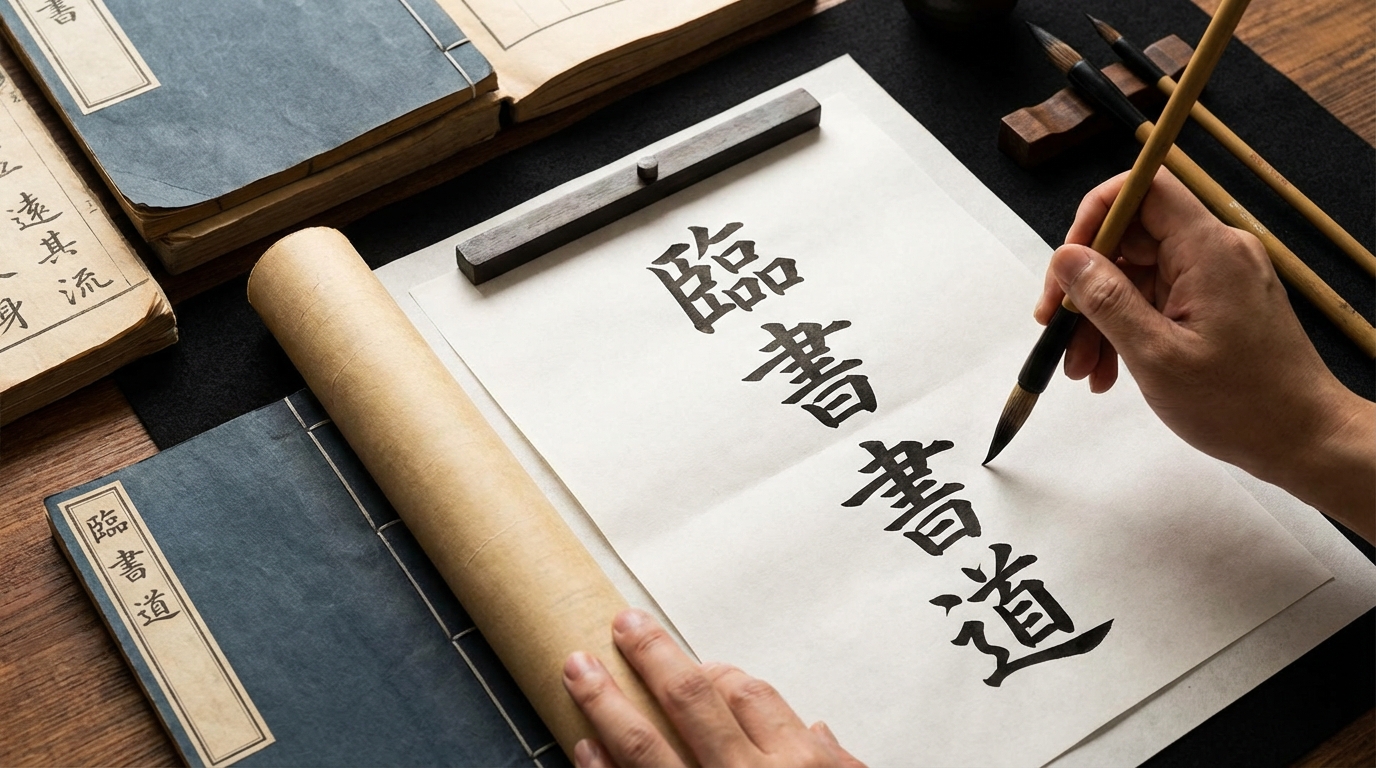 臨書書道
臨書道
書
遠其流
身